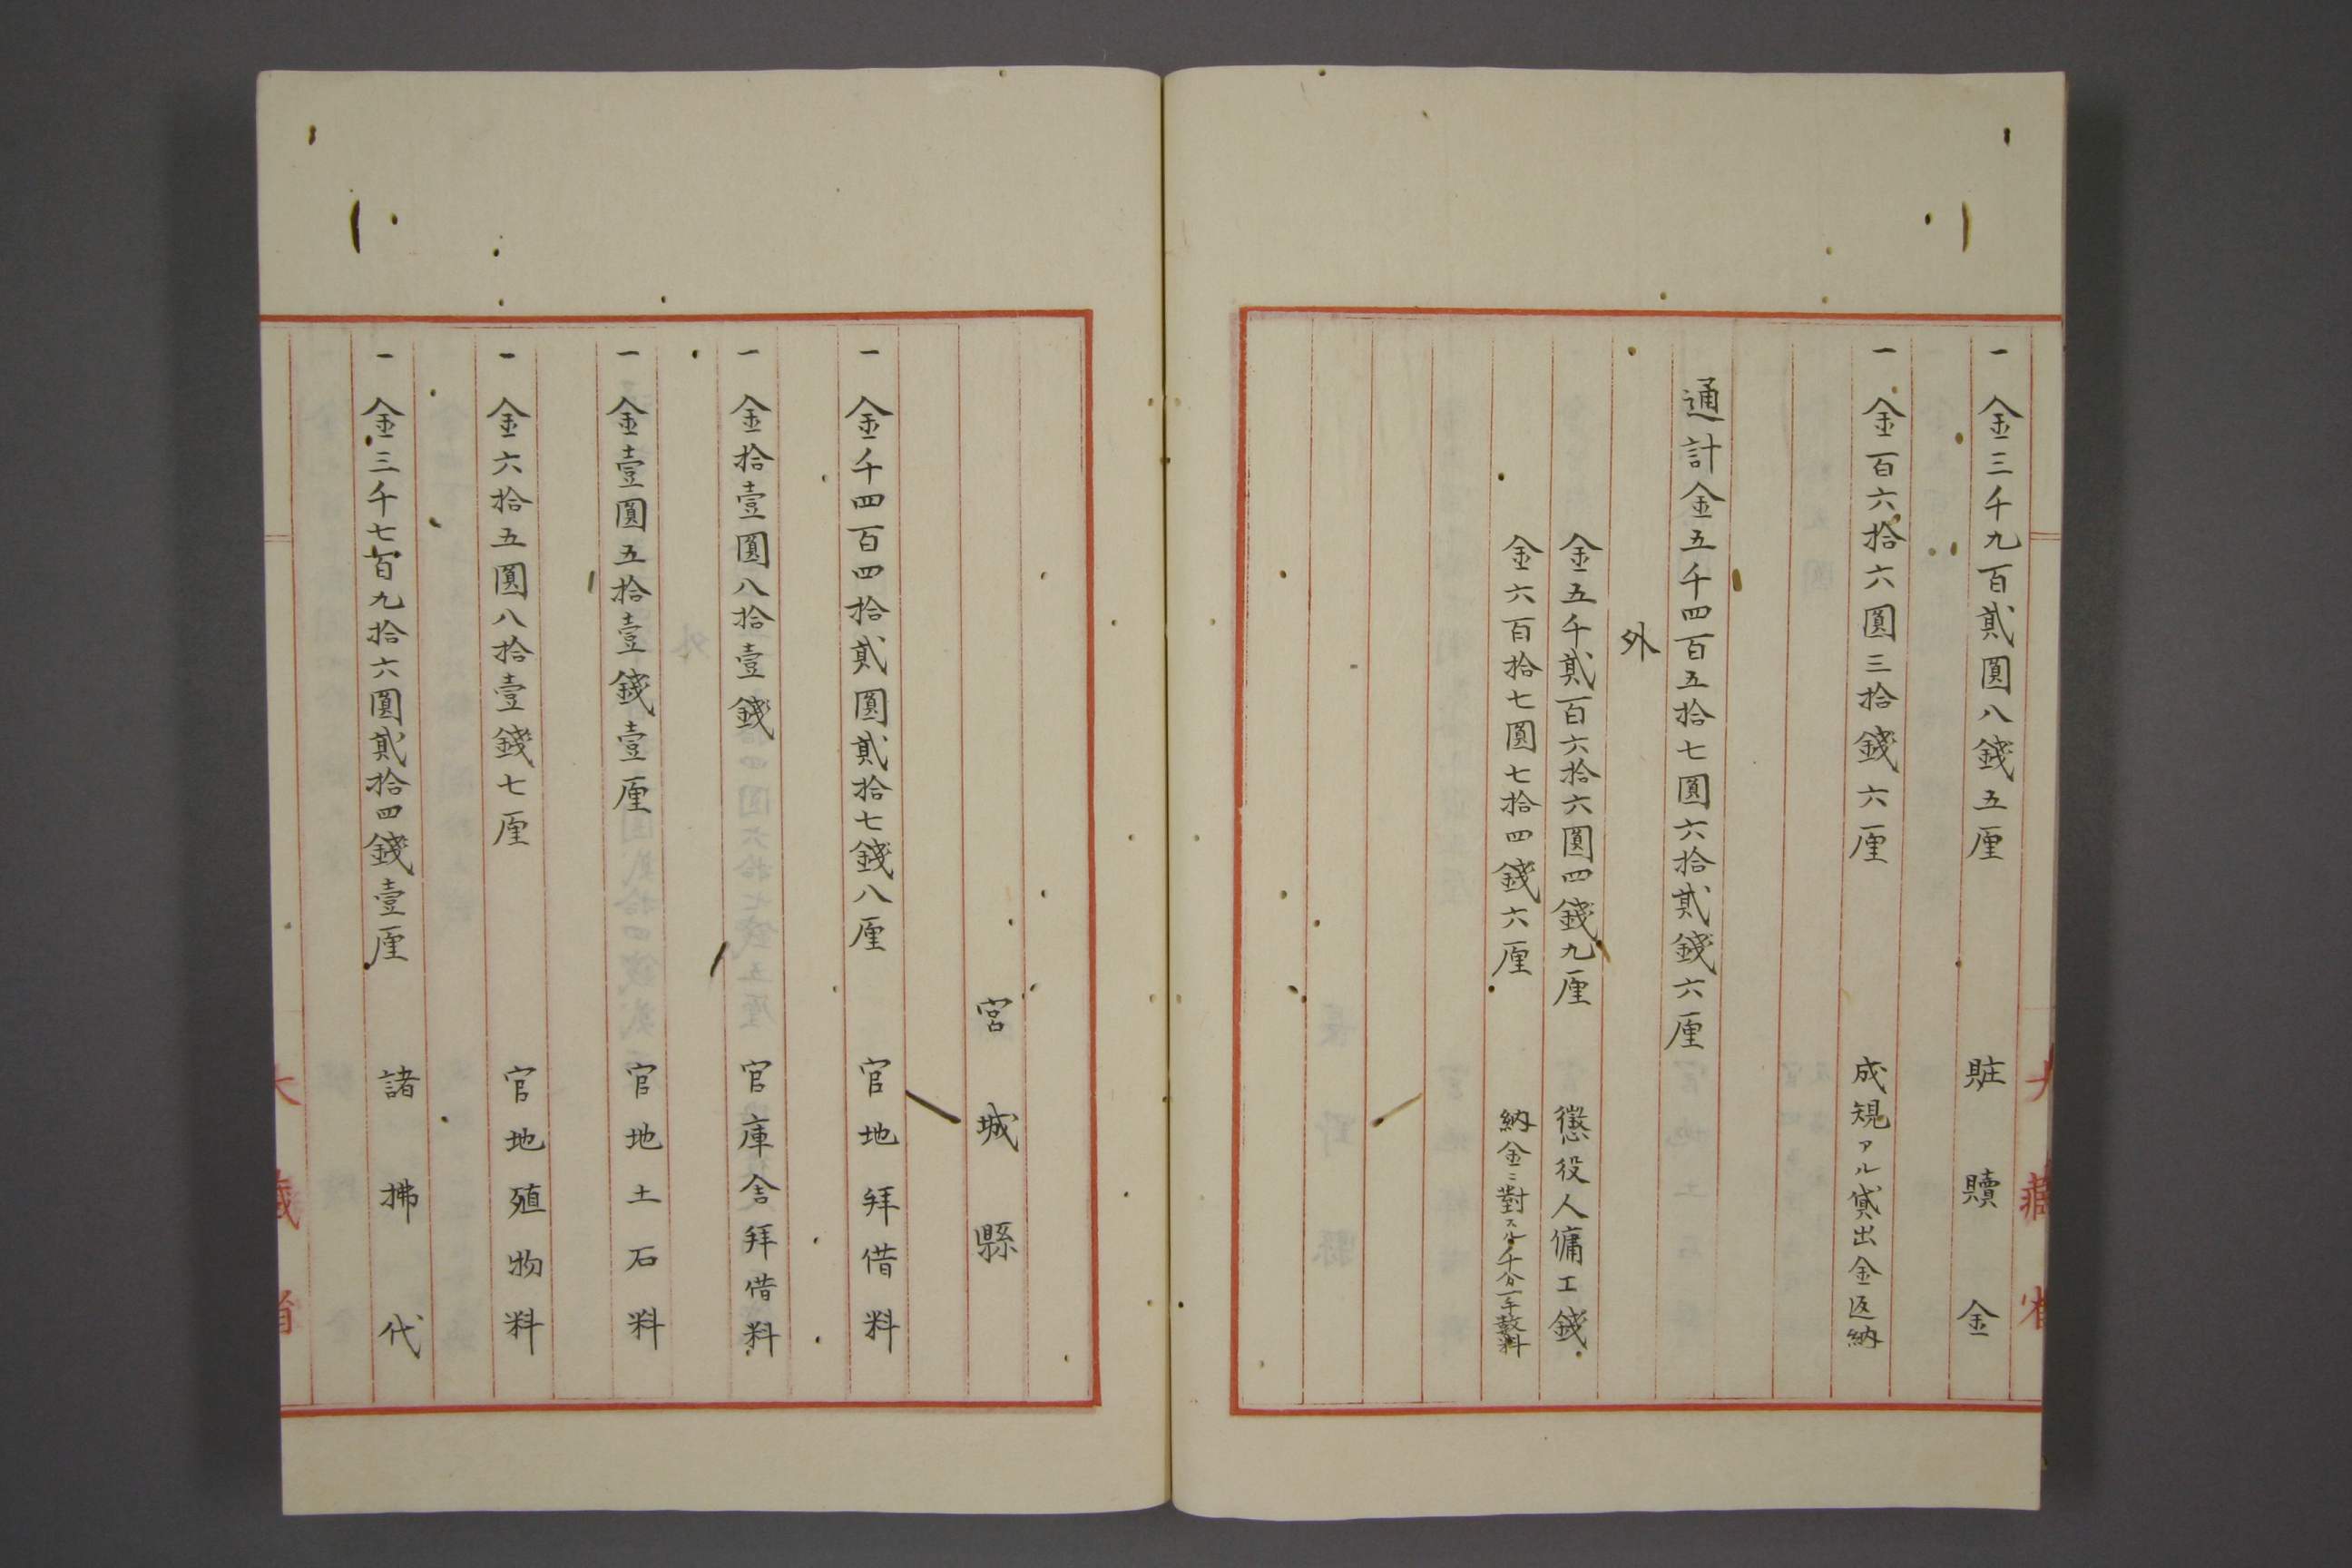 一 金三千九百貳圓八錢五厘 賍贖金
一 金百六拾六圓三拾錢六厘 成規アル貸出金返納
通計金五千四百五拾七圓六拾貳錢六厘
外
金五千貳百六拾六圓四錢九厘 懲役人傭工錢
金六百拾七圓七拾四錢六厘 納金ニ對スル千分一手數料
宮城縣
一 金千四百四拾貳圓貳拾七錢八厘 官地拜借料
一 金拾壹圓八拾壹錢 官庫舍拜借料
一 金壹圓五拾壹錢壹厘 官地土石料
一 金六拾五圓八拾壹錢七厘 官地殖物料
一 金三千七百九拾六圓貳拾四錢壹厘 諸拂代
大藏省